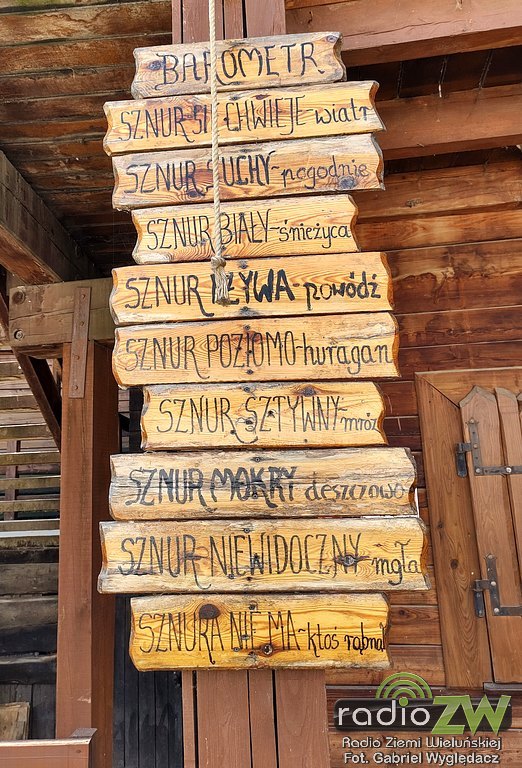 BAROMETR
SZNUR SI CHWIEJE-wiatr
SZNUR SUCHY-pogodnie
SZNUR BIAŁY-śnieżyca
SZNUR PŁYWA-powódź
SZNUR POZIOMO-huragan
SZNUR-SZTYWNY-mróz
SZNUR MOKRY deszczowo
SZNUR NIEWIDOCZNY mgła
SZNURA NIE MA-ktoś rąbnął
radioZW
Radio Ziemi Wieluńskiej
Fot. Gabriel Wygledacz